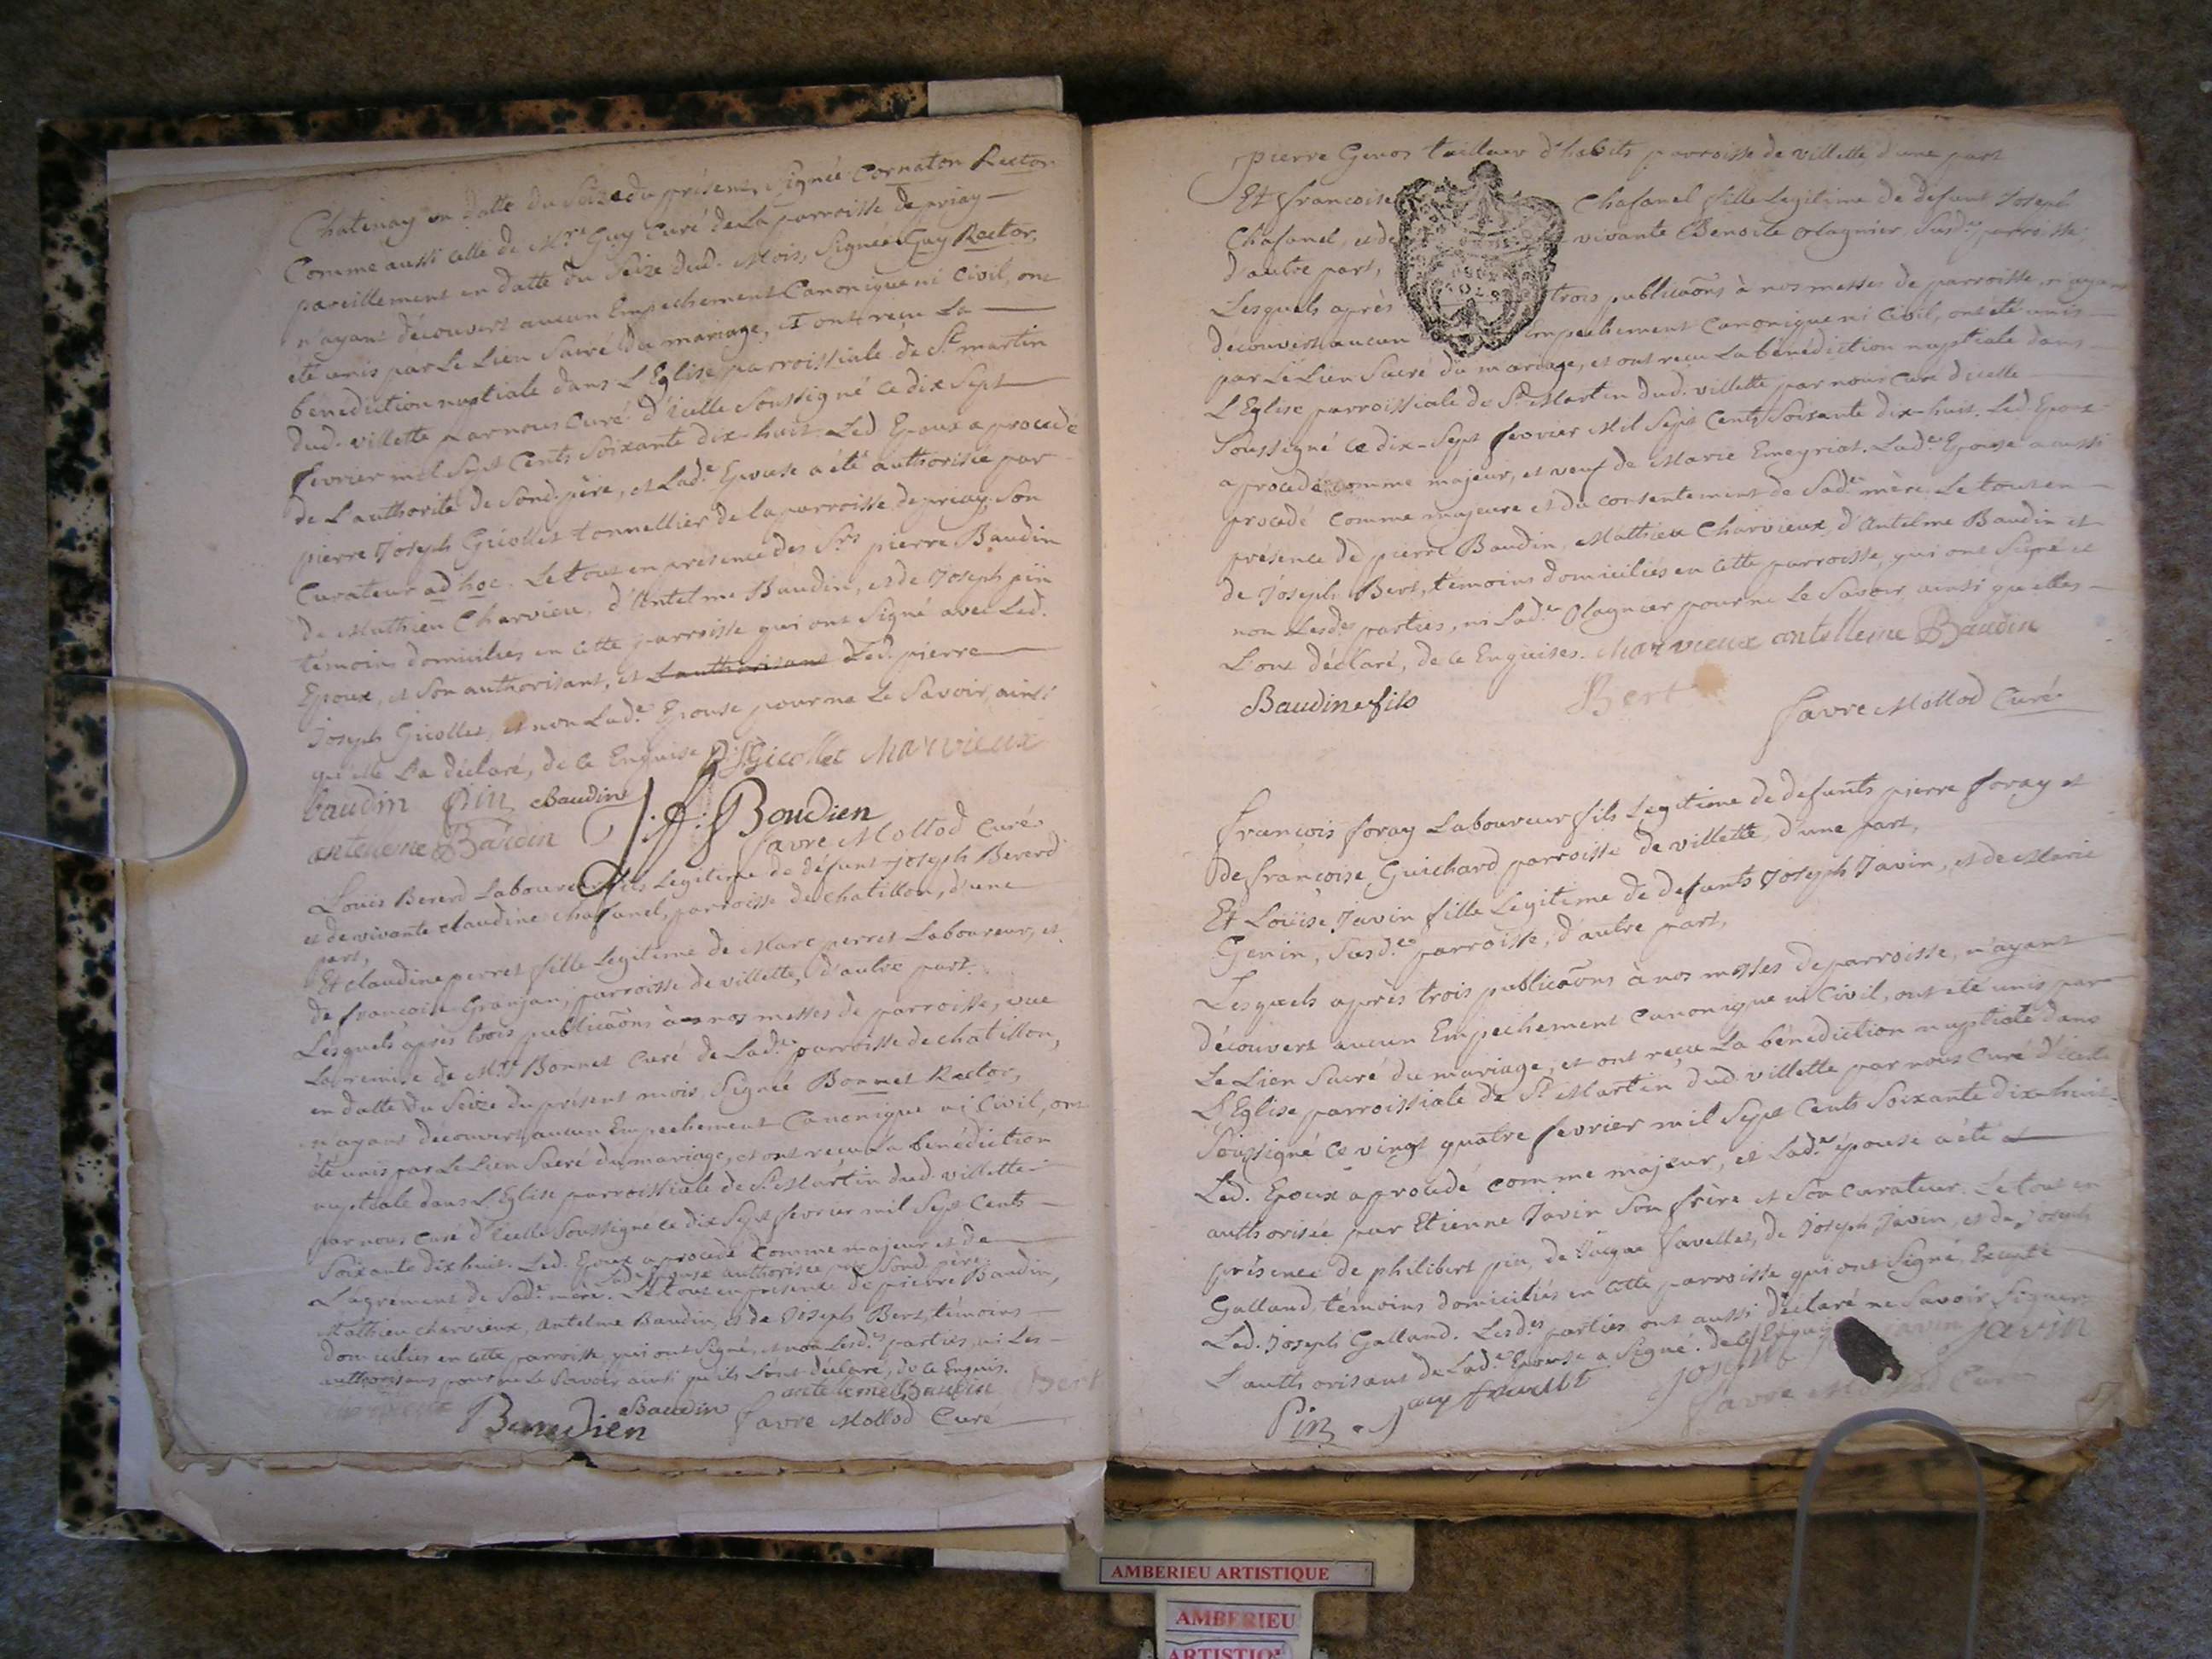 Chatenay en datte du Seize du présent, Signée Cornaton Rector
Comme aussi celle de Mre Guy Curé de La parroisse de priay
pareillement en datte du Seize dud. Mois, Signée Guy Rector,
n'ayant découvert aucun Empechement Canonique ni Civil, ont
été unis par Le Lien Sacré du mariage, et ont reçu La
bénédiction nuptiale dans L'Eglise parroissiale de St martin
dud. villette par nous Curé d'icelle Soussigné ce dix Sept
fevrier mil Sept Cents Soixante dix-huit. Led Epoux a procédé
de L'authorité de Sond. père, et Lad.e Epouse a été authorisée par
pierre Joseph Gicollet tonnellier de la parroisse de priay, Son
Curateur ad hoc. Le tout en présence des Srs pierre Baudin
de Mathieu Charvieu, d'Antelme Baudin, et de Joseph pin
témoins domiciliés en cette parroisse qui ont Signé avec Led.
Epoux, et Son authorisant, et L'authorisant Led. pierre
Joseph Gicollet, et non Lad.e Epouse pour ne Le Savoir, ainsi
qu'elle L'a déclaré, de ce Enquise P: J: Gicollet Charvieux
baudin Pin Baudin
anteleme Baudin J: f: Boudien
favre Mollod Curé
Loüis Bererd Laboureur fils Legitime de défunt joseph Bererd
et de vivante claudine Chafanel, parroisse de chatillon, d'une
part,
Et claudine perret fille Legitime de Marc perret Laboureur, et
de francoise Granjan, parroisse de villette, d'autre part.
Lesquels après trois publicaõns à nos messes de parroisse, vue
La remise de Mre Bonnet Curé de Lad.e parroisse de chatillon,
en datte du Seize du présent mois, Signée Bonnet Rector,
n'ayant découvert aucun Empechement Canonique ni Civil, ont
été unis par Le Lien Sacré du mariage, et ont reçu La bénédiction
nuptiale dans L'Eglise parroissiale de St Martin dud. villette
par nous Curé d'icelle Soussigné ce dix Sept fevrier mil Sept Cents
Soixante dix huit. Led. Epoux a procédé Comme majeur et de
L'agrément de Sad.e mère. Lad.e Epouse authorisée par Sond. père.
Le tout en présence de pierre Baudin,
Mathieu charvieux, Antelme Baudin, et de Joseph Bert, témoins
domiciliés en cette parroisse, qui ont Signé, et non Lesd.es parties, ni Les
authorisans pour ne Le Savoir ainsi qu'ils L'ont déclaré, de ce Enquis.
anteleme Baudin Bert
Baudin
Boudien favre Mollod Curé
pierre Genos tailleur d'habits parroisse de villette d'une part
Et francoise Chafanel fille Legitime de defunt Joseph
Chafanel, et de vivante Benoite Olagnier, Susd.e parroisse
d'autre part,
Lesquels après trois publicaõns à nos messes de parroisse, n'ayant
découvert aucun Empechement Canonique ni Civil, ont été unis
par Le Lien Sacré du mariage, et ont reçu La bénédiction nuptiale dans
L'Eglise parroissiale de St Martin dud. villette par nous Curé d'icelle
Soussigné ce dix-Sept fevrier Mil Sept Cents Soixante dix-huit. Led. Epoux
a procédé comme majeur, et veuf de Marie Emeyriat. Lad.e Epouse a aussi
procédé Comme majeure et du consentement de Sad.e mère. Le tout en
présence de pierre Baudin, Mathieu Charvieux, d'Antelme Baudin et
de Joseph Bert, témoins domiciliés en cette parroisse, qui ont Signé et
non Lesd.es parties, ni Lad.e Olagnier pour ne Le Savoir ainsi qu'elles
L'ont déclaré, de ce Enquises. Charvieux antelleme Baudin
Baudin fils Bert
favre Mollod Curé
françois foray Laboureur fils Legitime de defunts pierre foray et
de françoise Guichard parroisse de villette, d'une part,
Et Loüise Javin fille Legitime de defunts Joseph Javin, et de Marie
Genin, Susd.e parroisse, d'autre part,
Lesquels après trois publicaõns à nos messes de parroisse, n'ayant
découvert aucun Empechement canonique ni Civil, ont été unis par
Le Lien Sacré du mariage, et ont reçu La bénédiction nuptiale dans
L'Eglise parroissiale de St Martin dud. villette par nous Curé d'icelle
Soussigné ce vingt quatre fevrier mil Sept Cents Soixante dix-huit.
Led. Epoux a procédé comme majeur, et Lad.e épouse a été
authorisée par Etienne Javin Son frère et Son Curateur. Le tout en
présence de philibert pin, de Jacque favellet, de Joseph Javin, et de Joseph
Galland, témoins domiciliés en cette parroisse qui ont Signé, Excepté
Led. Joseph Galland. Lesd.es parties ont aussi déclaré ne Savoir Signer
L'authorisant de Lad.e Epouse a Signé. de ce Enquis javin javin
Pin Jacq favellet joseph
favre Mollod Curé
AMBERIEU ARTISTIQUE
AMBERIEU
ARTISTIQUE